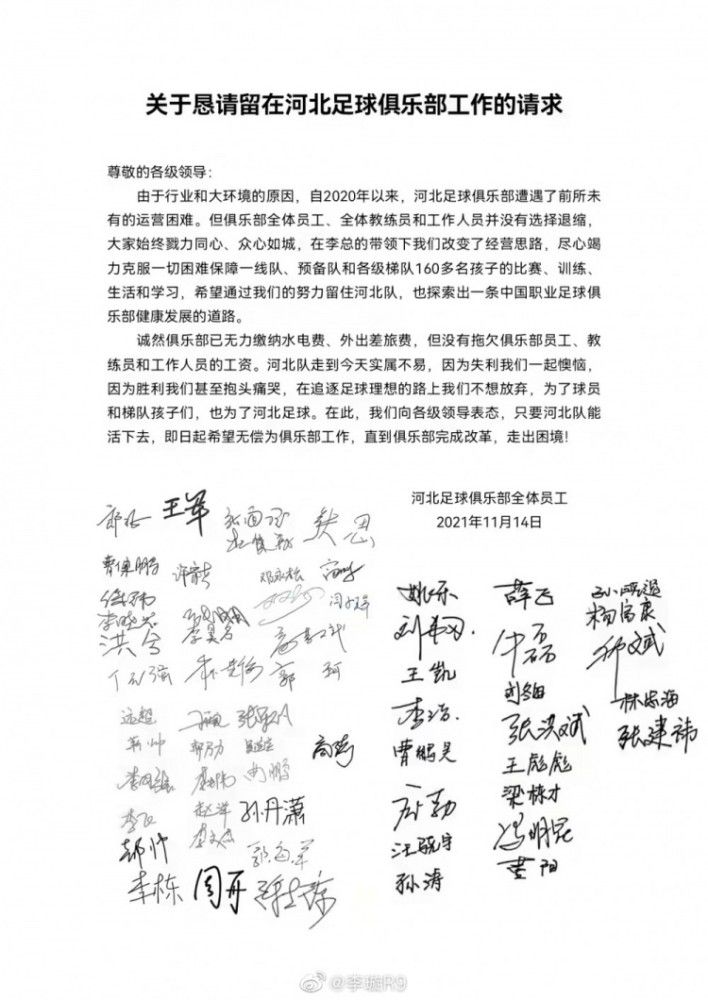 关于恳请留在河北足球俱乐部工作的请求
尊敬的各级领导：
由于行业和大环境的原因，自2020年以来，河北足球俱乐部遭遇了前所未
有的运营困难。但俱乐部全体员工、全体教练员和工作人员并没有选择退缩，
大家始终戮力同心、众心如城，在李总的带领下我们改变了经营思路，尽心竭
力克服一切困难保障一线队、预备队和各级梯队160多名孩子的比赛、训练、
生活和学习，希望通过我们的努力留住河北队，也探索出一条中国职业足球俱
乐部健康发展的道路。
诚然俱乐部已无力缴纳水电费、外出差旅费，但没有拖欠俱乐部员工、教
练员和工作人员的工资。河北队走到今天实属不易，因为失利我们一起懊恼，
因为胜利我们甚至抱头痛哭，在追逐足球理想的路上我们不想放弃，为了球员
和梯队孩子们，也为了河北足球。在此，我们向各级领导表态，只要河北队能
活下去，即日起希望无偿为俱乐部工作，直到俱乐部完成改革，走出困境！
河北足球俱乐部全体员工
2021年11月14日
王军
洪兮
郭珂
远超
孙丹潇
李栋 周丹
姚乐
王凯
李浩
曹鹏昊
孙涛
薛飞
张洪斌
王彪彪
梁栋才
冯明昆
黄阳
杨富康
林忠海
张建祎
@李璇R9